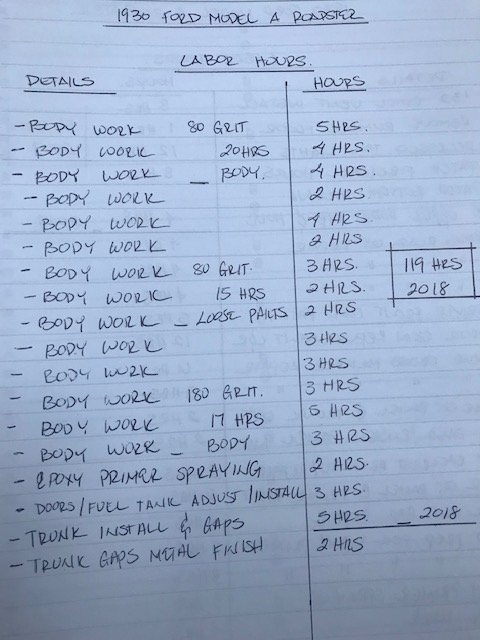 1930 FORD MODEL A ROADSTER
LABOR HOURS.
DETAILS HOURS
- BODY WORK 80 GRIT 5 HRS.
- BODY WORK 20 HRS 4 HRS.
- BODY WORK _ BODY. 4 HRS.
- BODY WORK 2 HRS
- BODY WORK 4 HRS.
- BODY WORK 2 HRS
- BODY WORK 80 GRIT. 3 HRS. 119 HRS
- BODY WORK 15 HRS 2 HRS. 2018
- BODY WORK _ LOOSE PARTS 2 HRS
- BODY WORK 3 HRS
- BODY WORK 3 HRS
- BODY WORK 180 GRIT. 3 HRS
- BODY WORK 17 HRS 5 HRS
- BODY WORK _ BODY 3 HRS
- EPOXY PRIMER SPRAYING 2 HRS.
- DOORS/FUEL TANK ADJUST/INSTALL 3 HRS.
- TRUNK INSTALL & GAPS 5 HRS. _ 2018
- TRUNK GAPS METAL FINISH 2 HRS